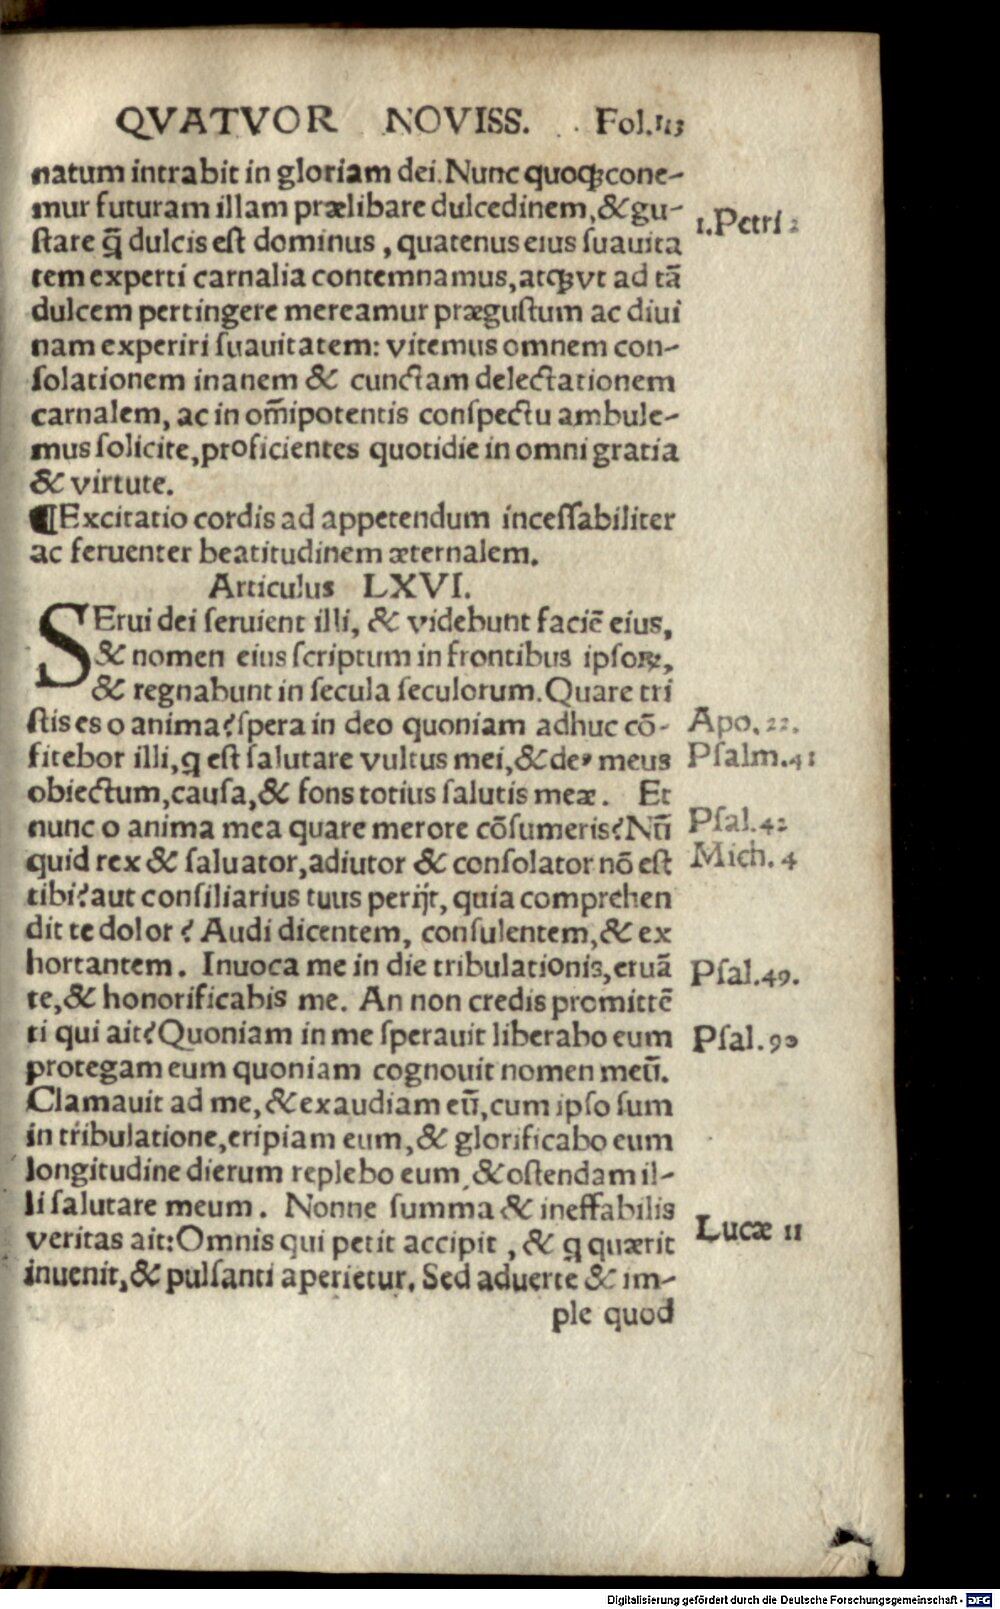 QVATVOR NOVISS. Fol.113
natum intrabit in gloriam dei. Nunc quoqꝫ cone-
mur futuram illam prælibare dulcedinem, & gu-
1.Petri 2
ſtare q̄ dulcis eſt dominus, quatenus eius ſuauita
tem experti carnalia contemnamus, atqꝫ vt ad tā
dulcem pertingere mereamur præguſtum ac diui
nam experiri ſuauitatem: vitemus omnem con-
ſolationem inanem & cunctam delectationem
carnalem, ac in om̄ipotentis conſpectu ambule-
mus ſolicite, proficientes quotidie in omni gratia
& virtute.
¶Excitatio cordis ad appetendum inceſſabiliter
ac feruenter beatitudinem æternalem.
Articulus LXVI.
SErui dei ſeruient illi, & videbunt faciē eius,
& nomen eius ſcriptum in frontibus ipſoꝝ,
& regnabunt in ſecula ſeculorum. Quare tri
ſtis es o anima? ſpera in deo quoniam adhuc cō-
Apo. 22.
fitebor illi, q eſt ſalutare vultus mei, & deꝰ meus
Pſalm.41
obiectum, cauſa, & fons totius ſalutis meæ. Et
nunc o anima mea quare merore cōſumeris? Nū
Pſal.42
quid rex & ſaluator, adiutor & conſolator nō eſt
Mich. 4
tibi? aut conſiliarius tuus perijt, quia comprehen
dit te dolor? Audi dicentem, conſulentem, & ex
hortantem. Inuoca me in die tribulationis, eruā
Pſal.49.
te, & honorificabis me. An non credis promittē
ti qui ait? Quoniam in me ſperauit liberabo eum
Pſal.90
protegam eum quoniam cognouit nomen meū.
Clamauit ad me, & exaudiam eū, cum ipſo ſum
in tribulatione, eripiam eum, & glorificabo eum
longitudine dierum replebo eum, & oſtendam il-
li ſalutare meum. Nonne ſumma & ineffabilis
veritas ait: Omnis qui petit accipit, & q quærit
Lucæ 11
inuenit, & pulſanti aperietur. Sed aduerte & im-
ple quod
Digitalisierung gefördert durch die Deutsche Forschungsgemeinschaft - DFG